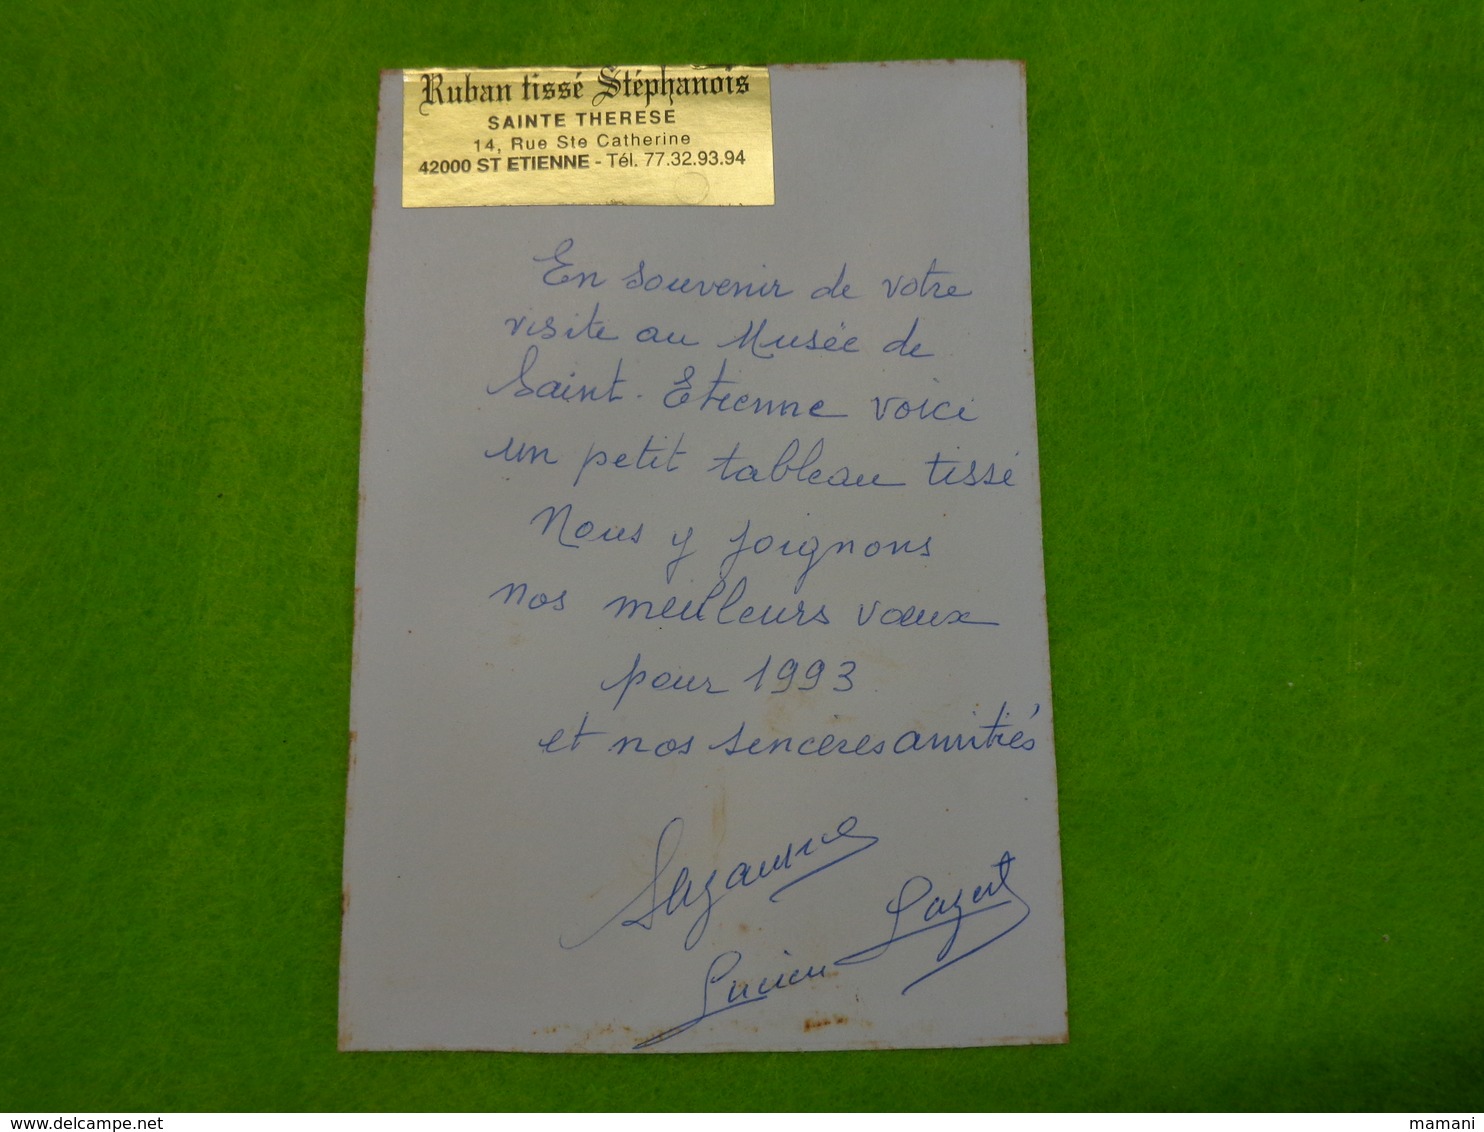 Ruban tissé Stéphanois
SAINTE THERESE
14, Rue Ste Catherine
42000 ST ETIENNE - Tél. 77.32.93.94
En souvenir de votre
visite au Musée de
Saint-Etienne voici
un petit tableau tissé
Nous y joignons
nos meilleurs vœux
pour 1993
et nos sinceres amitiés
Suzanne
Lucien
delcampe.net
mamani